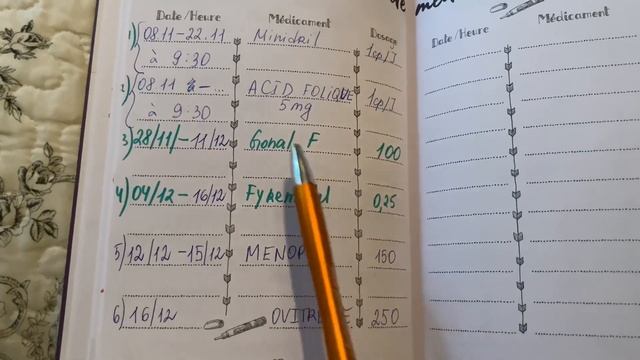 Date/Heure Médicament Dosage
1) 08.11-22.11 Minidril 1cp/J
à 9:30
2) 08.11 - ... ACID FOLIQUE 1cp/J
à 9:30 5mg
3) 28/11/-11/12 Gonal F 100
4) 04/12-16/12 0,25
5) 12/12-15/12 150
6) 16/12 250
Date/Heure Médicament